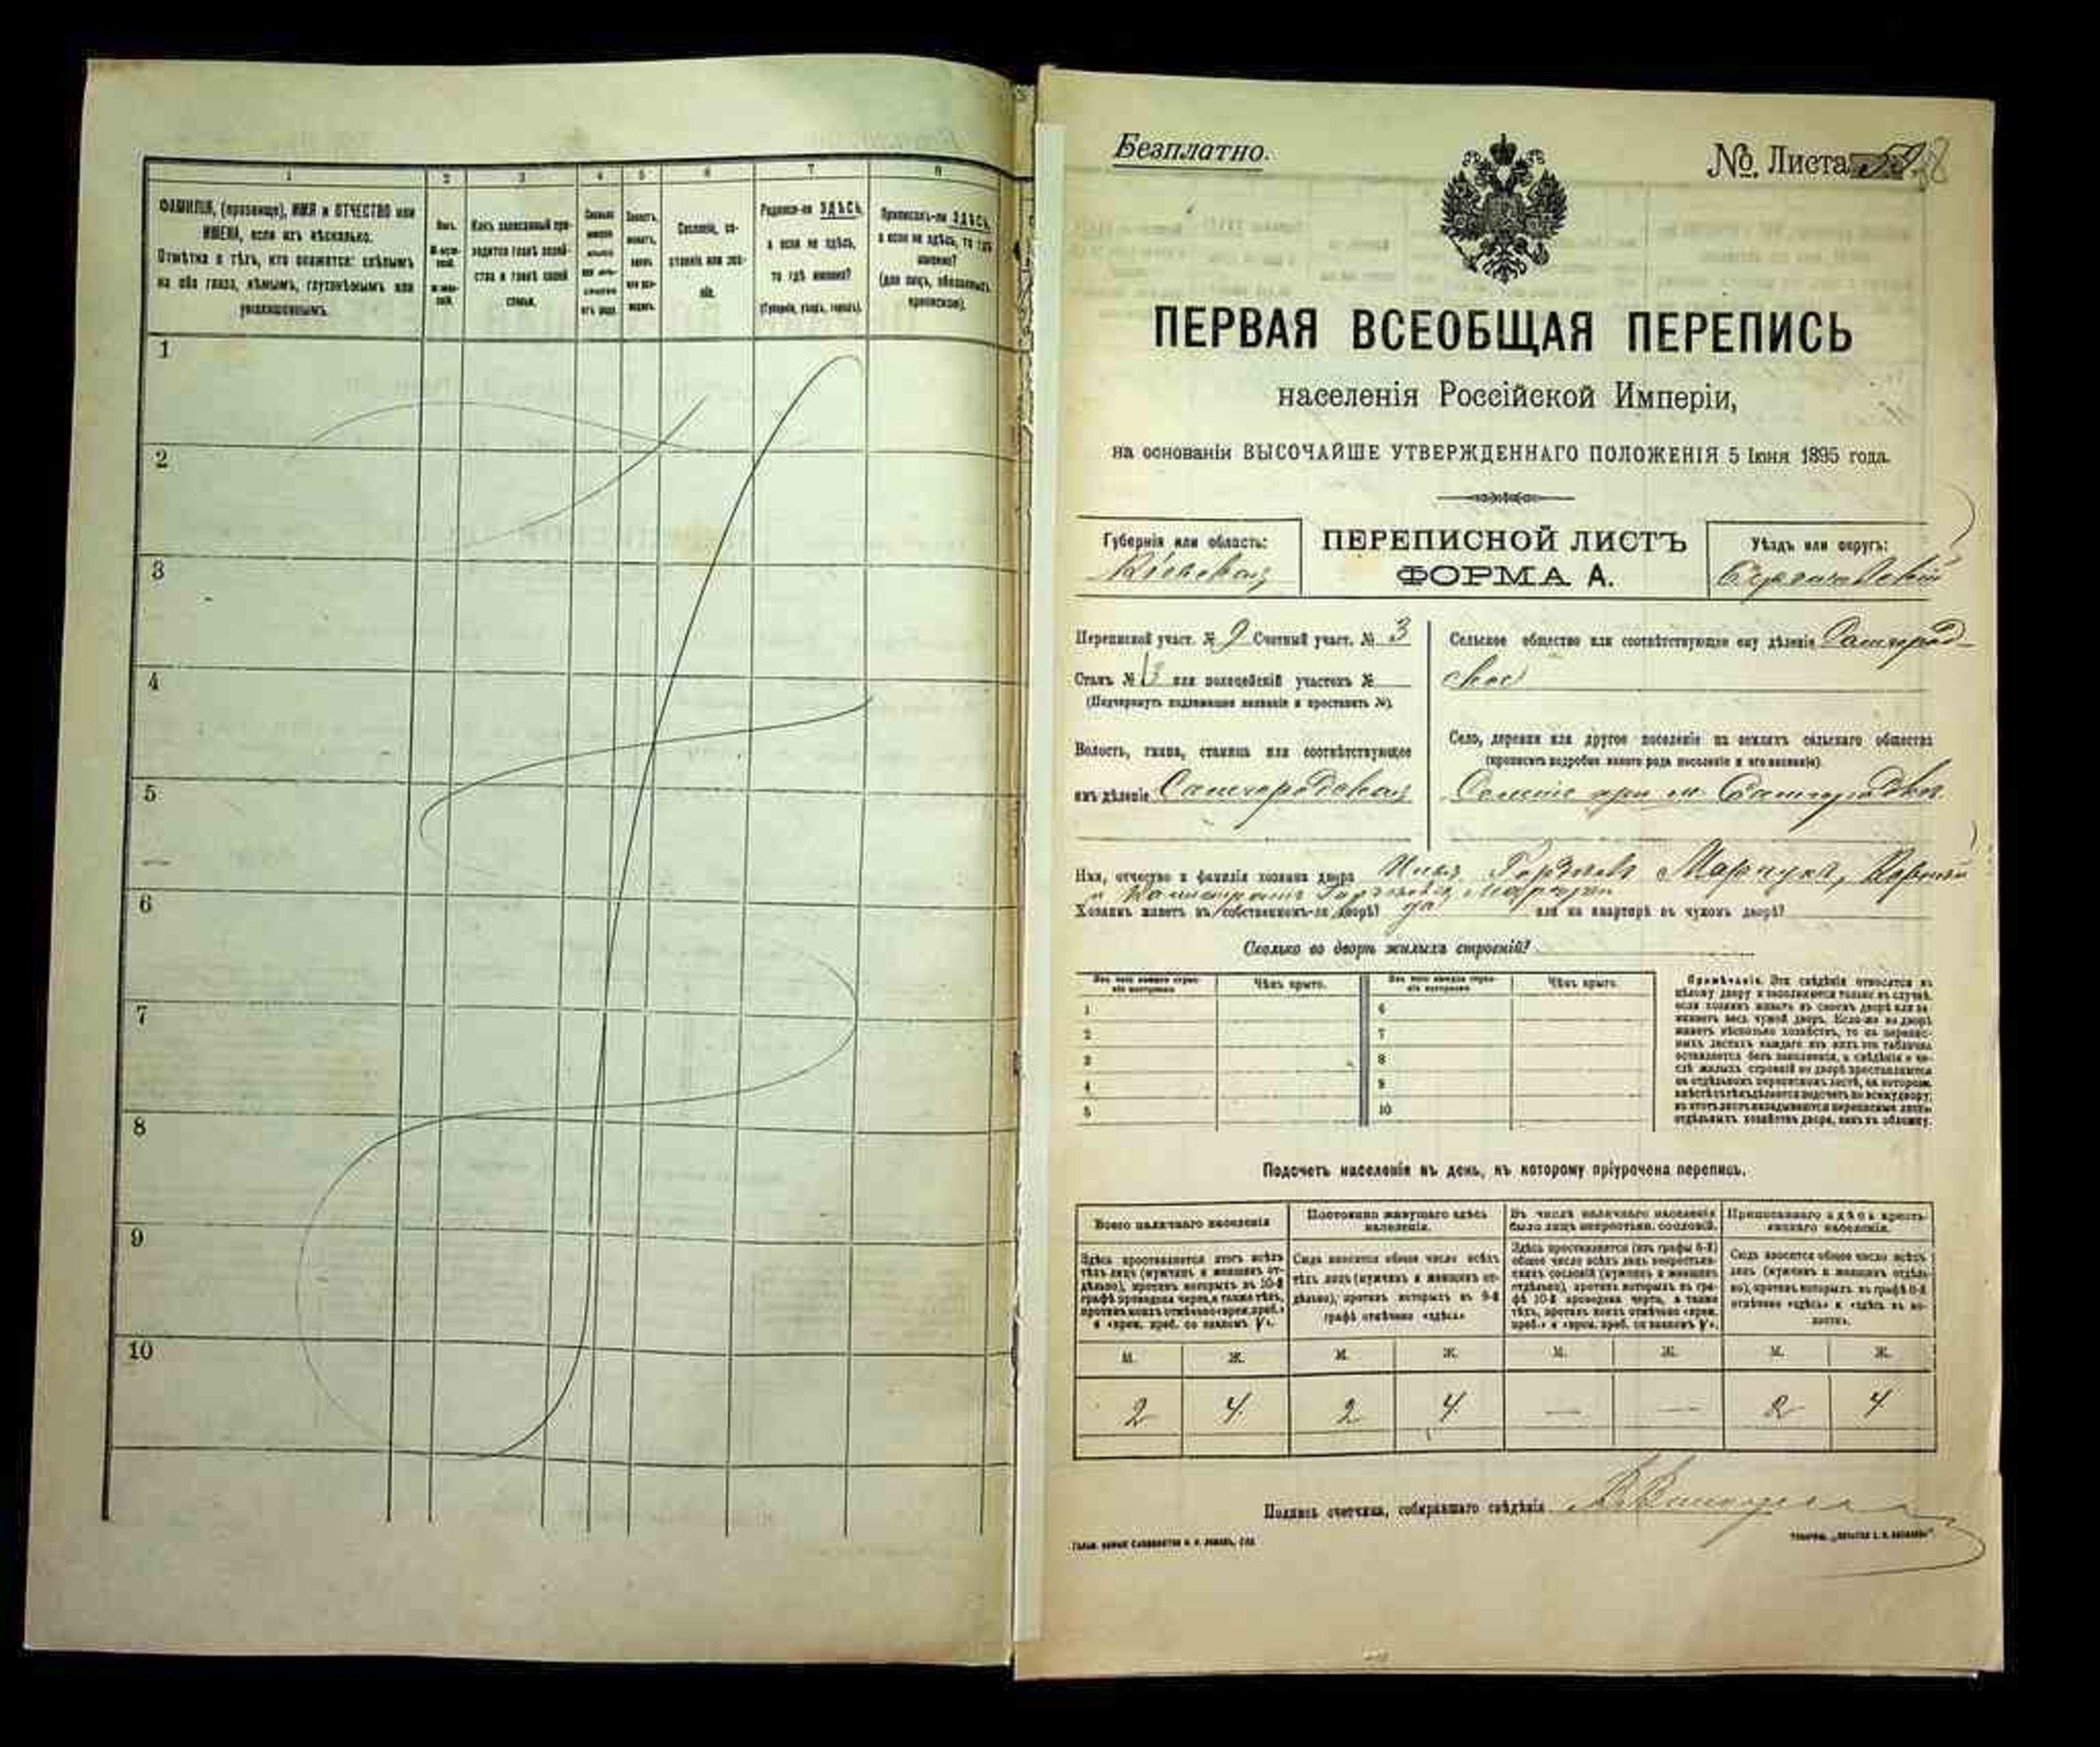 1 2 3 4 5 6 7 8
ФАМИЛІЯ, (прозвище), ИМЯ и ОТЧЕСТВО или
ИМЕНА, если ихъ нѣсколько.
Отмѣтка о тѣхъ, кто окажется: слѣпымъ
на оба глаза, нѣмымъ, глухонѣмымъ или
умалишеннымъ.
Полъ.
М-муж-
ской.
Ж-жен-
скій.
Какъ записанный при-
ходится главѣ хозяй-
ства и главѣ своей
семьи.
Сколько
минуло
лѣтъ
отъ роду.
Сословіе, со-
стояніе или зва-
ніе.
Родился-ли ЗДѢСЬ,
а если не здѣсь,
то гдѣ именно?
(Губернія, уѣздъ, городъ).
Приписанъ-ли ЗДѢСЬ,
а если не здѣсь, то гдѣ
именно?
(для лицъ, обязанныхъ
припискою).
1
2
3
4
5
6
7
8
9
10
Безплатно.
№ Листа
ПЕРВАЯ ВСЕОБЩАЯ ПЕРЕПИСЬ
населенія Россійской Имперіи,
на основаніи ВЫСОЧАЙШЕ УТВЕРЖДЕННАГО ПОЛОЖЕНІЯ 5 Іюня 1895 года.
Губернія или область:
Кіевская
ПЕРЕПИСНОЙ ЛИСТЪ
ФОРМА А.
Уѣздъ или округъ:
Бердичевскій
Переписной участ. № 9 Счетный участ. № 3
Станъ № 3 или полицейскій участокъ №
(Подчеркнуть подлежащее названіе и проставить №).
Волость, гмина, станица или соотвѣтствующее
имъ дѣленіе Самгородокская
Сельское общество или соотвѣтствующее ему дѣленіе Самгород-
ское
Село, деревня или другое поселеніе на земляхъ сельскаго общества
(прописать подробно какого рода поселеніе и его названіе)
Селеніе при м. Самгородкѣ
Имя, отчество и фамилія хозяина двора Марчукъ,
и Марчуки
Хозяинъ живетъ въ собственномъ-ли дворѣ? да или на квартирѣ въ чужомъ дворѣ?
Сколько во дворѣ жилыхъ строеній?
Изъ чего каждое строе-
ніе построено Чѣмъ крыто. Изъ чего каждое строе-
ніе построено Чѣмъ крыто.
1 6
2 7
3 8
4 9
5 10
Примѣчаніе. Эти свѣдѣнія относятся къ
цѣлому двору и заполняются только въ случаѣ,
если хозяинъ живетъ въ своемъ дворѣ или за-
нимаетъ весь чужой дворъ. Если-же во дворѣ
живетъ нѣсколько хозяйствъ, то на перепис-
ныхъ листахъ каждаго изъ нихъ эта табличка
оставляется безъ заполненія, а свѣдѣнія о чи-
слѣ жилыхъ строеній во дворѣ проставляются
на отдѣльномъ переписномъ листѣ, на которомъ
вмѣстѣ съ тѣмъ дѣлается подсчетъ по всему двору;
въ этотъ листъ вкладываются переписные листы
отдѣльныхъ хозяйствъ двора, какъ въ обложку.
Подсчетъ населенія въ день, къ которому пріурочена перепись.
Всего наличнаго населенія
Здѣсь проставляется итогъ всѣхъ
тѣхъ лицъ (мужчинъ и женщинъ от-
дѣльно), противъ которыхъ въ 10-й
графѣ проведена черта, а также тѣхъ,
противъ коихъ отмѣчено «врем. преб.»
Постоянно живущаго здѣсь
населенія.
Сюда вносится общее число всѣхъ
тѣхъ лицъ (мужчинъ и женщинъ от-
дѣльно), противъ которыхъ въ 9-й
графѣ отмѣчено «здѣсь»
Въ числѣ наличнаго населенія
было лицъ некрестьян. сословій.
Здѣсь проставляется (изъ графы 6-й)
общее число всѣхъ лицъ некрестьян-
скихъ сословій (мужчинъ и женщинъ
отдѣльно), противъ которыхъ въ гра-
фѣ 10-й проведена черта, а также
тѣхъ, противъ коихъ отмѣчено «врем.
Приписаннаго здѣсь кресть-
янскаго населенія.
Сюда вносится общее число всѣхъ
лицъ (мужчинъ и женщинъ отдѣль-
но), противъ которыхъ въ графѣ 8-й
отмѣчено «здѣсь» и «здѣсь въ во-
лости».
М. Ж. М. Ж. М. Ж. М. Ж.
2 4 2 4 — — 2 4
Подпись счетчика, собиравшаго свѣдѣнія